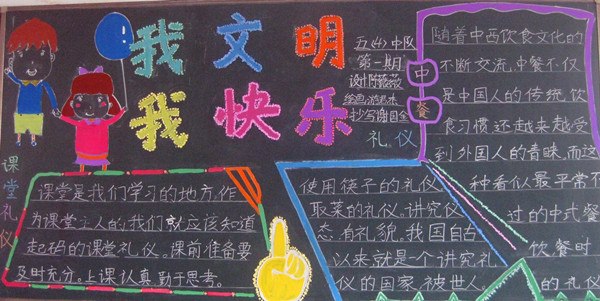 我文明
我快乐
五(4)中队
第一期
课堂礼仪
课堂是我们学习的地方,作
为课堂主人的我们就应该知道
起码的课堂礼仪。课前准备要
及时充分。上课认真勤于思考。
中餐
礼仪
随着中西饮食文化的
不断交流,中餐不仅
是中国人的传统饮
食习惯还越来越受
到外国人的青睐,而这
种看似最平常不
过的中式餐
饮,餐时
的礼仪
使用筷子的礼仪
取菜的礼仪。讲究仪
态,有礼貌。我国自古
以来就是一个讲究礼
仪的国家,被世人。